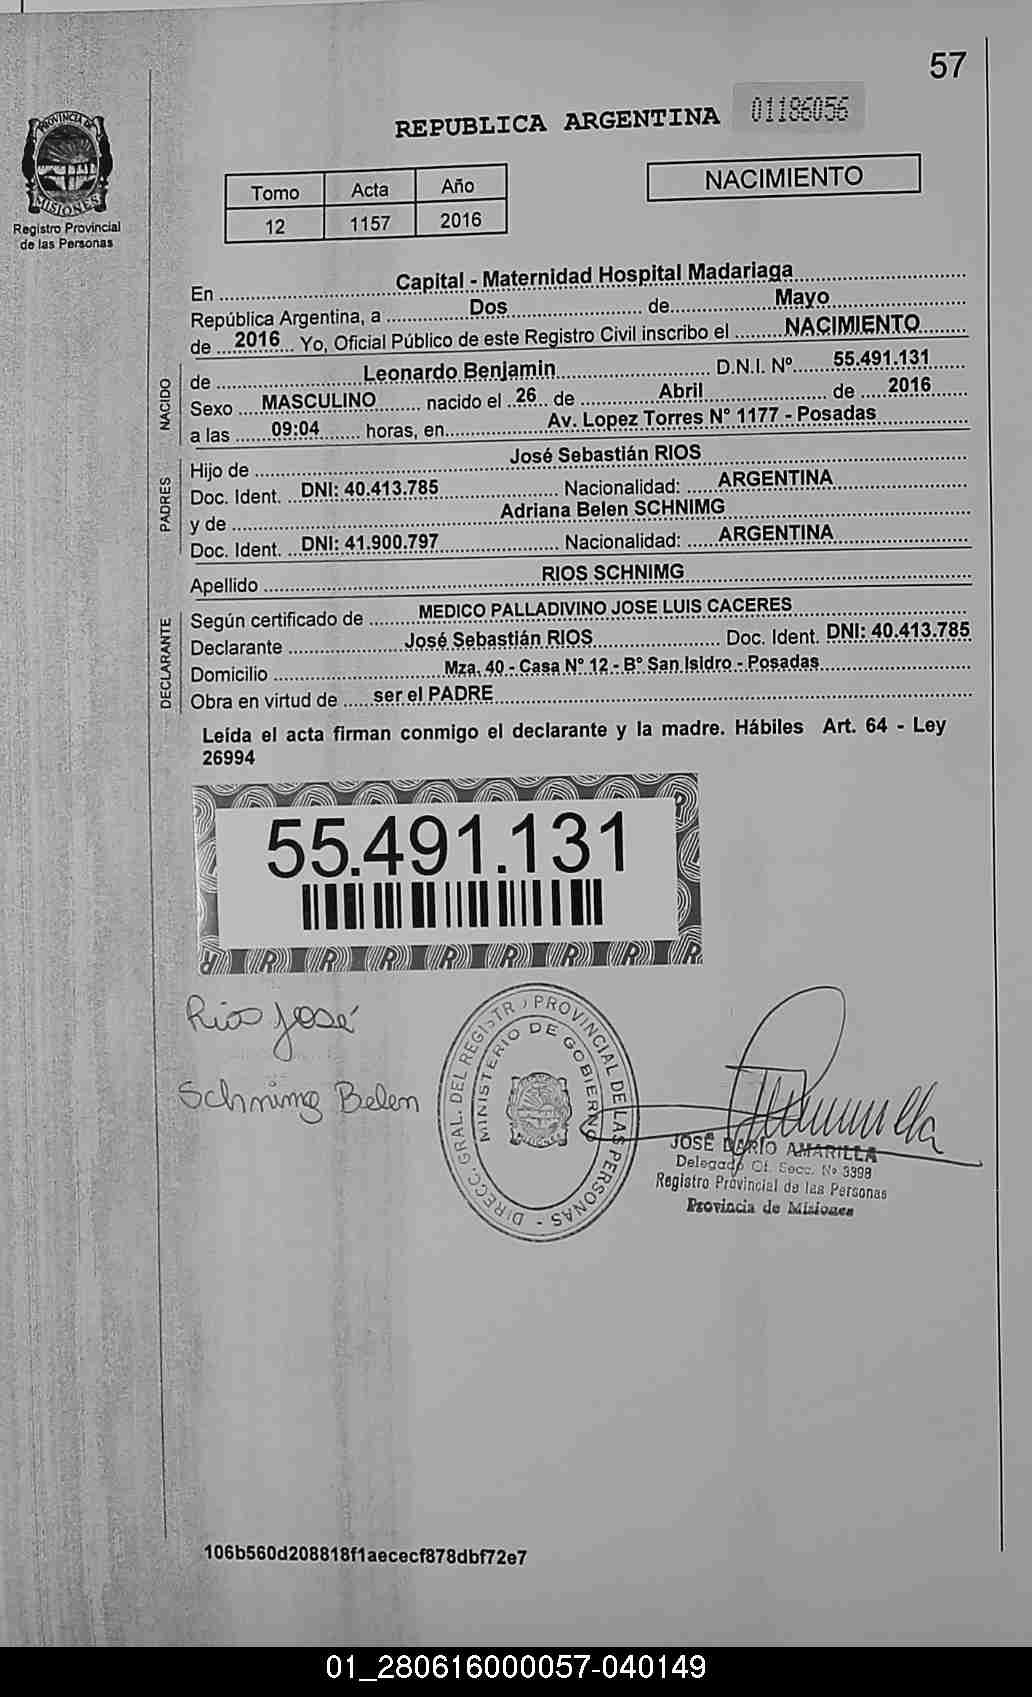 57
PROVINCIA DE
MISIONES
Registro Provincial
de las Personas
REPUBLICA ARGENTINA 01186056
NACIMIENTO
Tomo Acta Año
12 1157 2016
En ........ Capital - Maternidad Hospital Madariaga ........
República Argentina, a ........ Dos ........ de ........ Mayo ........
de ... 2016 ... Yo, Oficial Público de este Registro Civil inscribo el ........ NACIMIENTO ........
NACIDO
de ........ Leonardo Benjamin ........ D.N.I. Nº ........ 55.491.131 ........
Sexo ... MASCULINO ........ nacido el .. 26 .. de ........ Abril ........ de .... 2016 ........
a las ........ 09:04 ........ horas, en ........ Av. Lopez Torres N° 1177 - Posadas ........
PADRES
Hijo de ........ José Sebastián RIOS ........
Doc. Ident. .. DNI: 40.413.785 ........ Nacionalidad: ..... ARGENTINA ........
y de ........ Adriana Belen SCHNIMG ........
Doc. Ident. .. DNI: 41.900.797 ........ Nacionalidad: ..... ARGENTINA ........
Apellido ........ RIOS SCHNIMG ........
DECLARANTE
Según certificado de ........ MEDICO PALLADIVINO JOSE LUIS CACERES ........
Declarante ........ José Sebastián RIOS ........ Doc. Ident. DNI: 40.413.785
Domicilio ........ Mza. 40 - Casa N° 12 - B° San Isidro - Posadas ........
Obra en virtud de ...... ser el PADRE ........
Leída el acta firman conmigo el declarante y la madre. Hábiles Art. 64 - Ley
26994
55.491.131
Rios José
Schnimg Belen
DIRECC. GRAL. DEL REGISTRO PROVINCIAL DE LAS PERSONAS -
MINISTERIO DE GOBIERNO
MISIONES
JOSÉ DARÍO AMARILLA
Delegado Of. Secc. Nº 3398
Registro Provincial de las Personas
Provincia de Misiones
106b560d208818f1aececf878dbf72e7
01_280616000057-040149